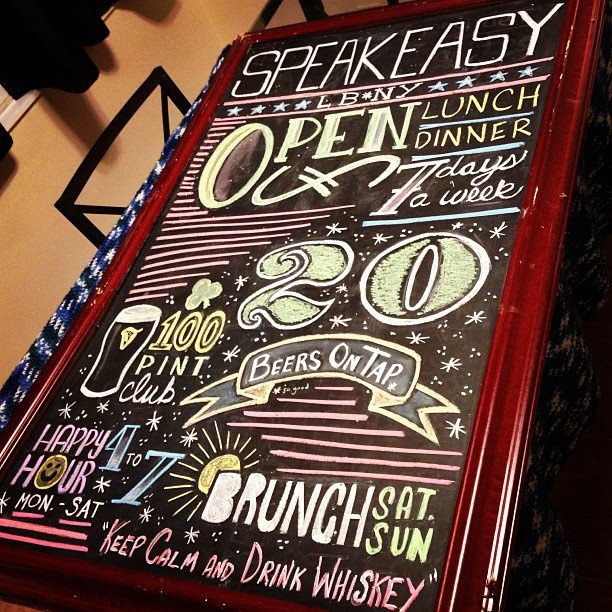 SPEAKEASY
LB*NY
OPEN LUNCH
DINNER
7 days
a week
20
100
PINT
club
BEERS ON TAP
HAPPY
HOUR
4 TO 7
MON.-SAT
BRUNCH SAT.
SUN
"KEEP CALM AND DRINK WHISKEY"